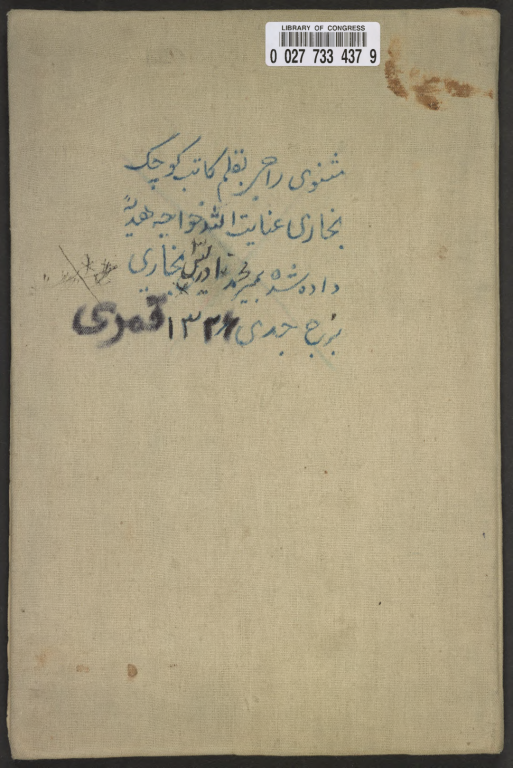 LIBRARY OF CONGRESS
0 027 733 437 9
مثنوی راجی بقلم کاتب کوچک
بخاری عنایت الله خواجه هدیهٔ
داده شده بمیر محمد ادریس بخاری
برج جدی ۱۳۲۶ قمری